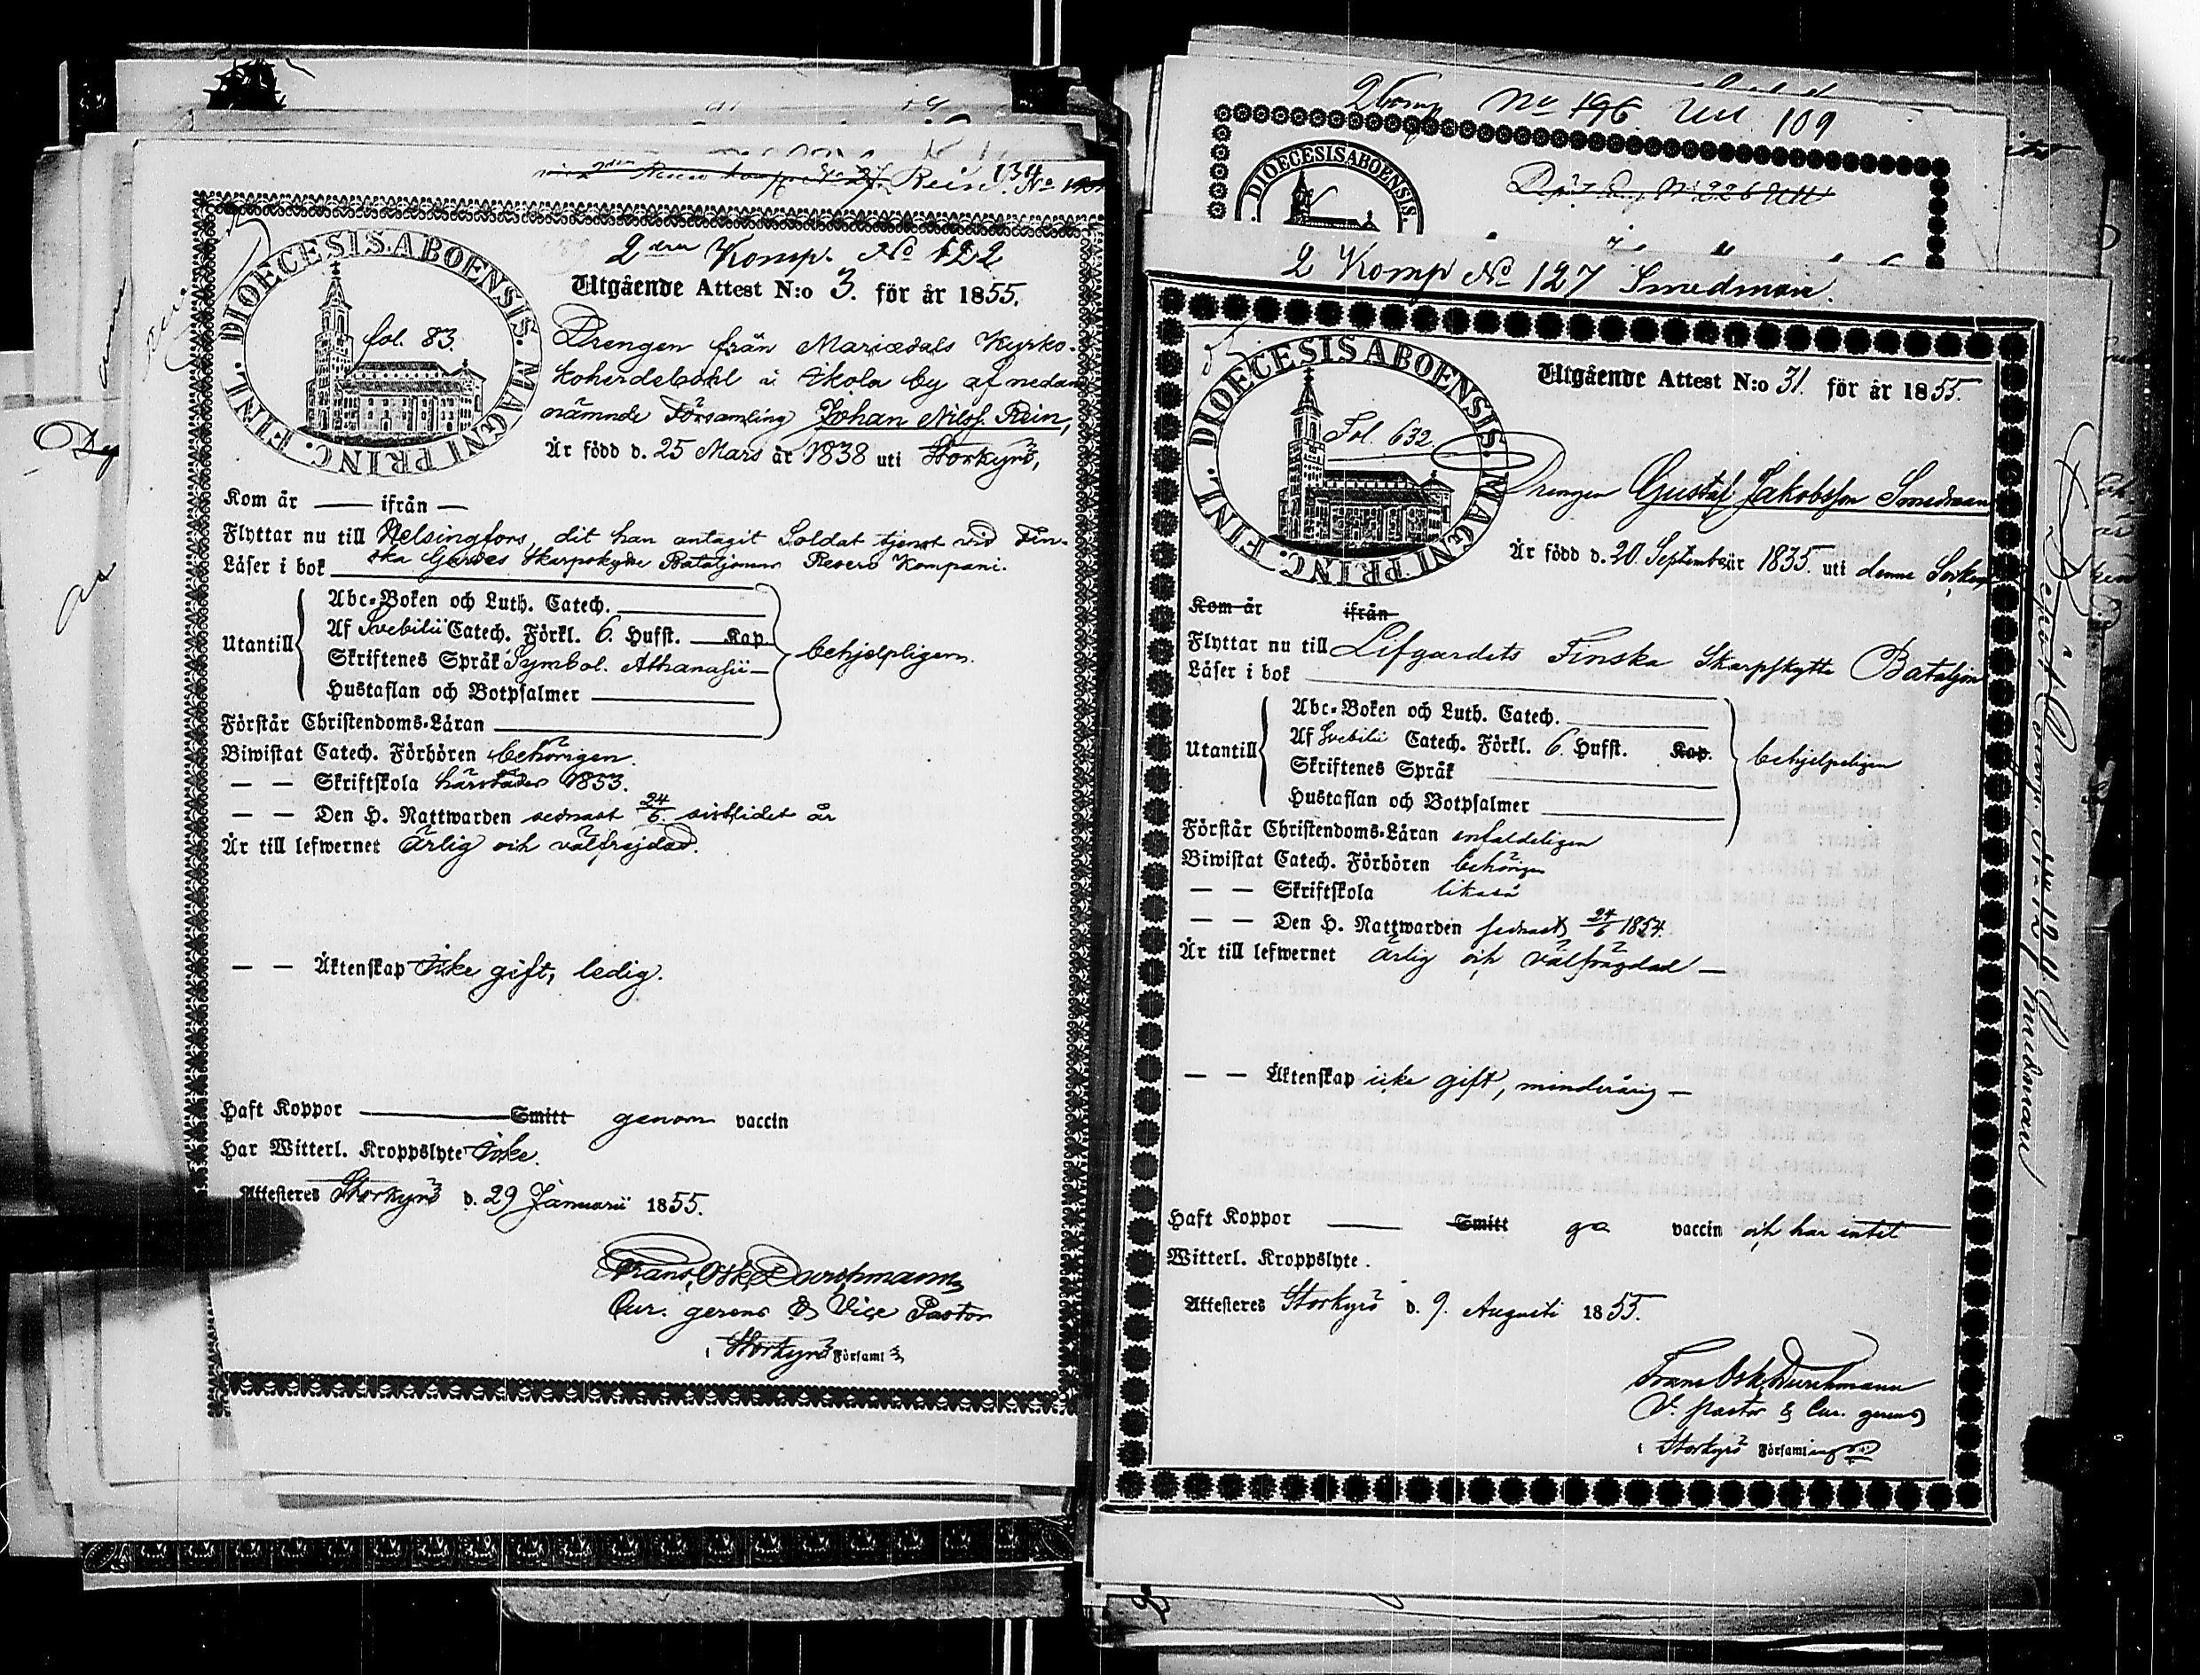 Rein. 134 No
2dra Komp. No 122
DIOECESIS ABOENSIS. MAGNI PRINC. FINL.
fol. 83.
Utgående Attest N:o 3. för år 1855.
Drengen från Mariædals Kyrko-
koherdebohl i Skola by af nedan
nämnde Församling Johan Nilss. Rein,
Är född d. 25 Mars år 1838 uti Storkyrö,
Kom år — ifrån —
Flyttar nu till Helsingfors, dit han antagit Soldat tjenst vid Fin-
ska Gardes Skarpskytte Bataljonens Reserv Kompani.
Läser i bok
Utantill
Abc-Boken och Luth. Catech.
Af Svebilii Catech. Förkl. 6. Hufst. — Kap.
Skriftenes Språk Symbol. Athanasii —
Hustaflan och Botpsalmer
behjelpligen.
Förstår Christendoms-Läran
Biwistat Catech. Förhören behörigen.
— — Skriftskola härstädes 1853.
— — Den H. Nattwarden sednast 24/6. sistlidet år
Är till lefwernet ärlig och välfrejdad.
— — Äktenskap icke gift, ledig.
Haft Koppor — Smitt genom vaccin
Har Witterl. Kroppslyte icke.
Attesteres Storkyrö d. 29 Januarii 1855.
Frans Osk. Durchmann
Cur. gerens & Vice Pastor
i Storkyrö Församl
2 Komp No 196 Ull 109
DIOECESIS ABOENSIS.
2 Komp No 127 Smedman.
DIOECESIS ABOENSIS. MAGNI PRINC. FINL.
Fol. 632.
Utgående Attest N:o 31. för år 1855.
Drengen Gustaf Jakobsson Smedman
Är född d. 20. September år 1835. uti denne Socken
Kom år ifrån
Flyttar nu till Lifgardets Finska Skarpskytte Bataljon
Läser i bok
Utantill
Abc-Boken och Luth. Catech.
Af Svebilii Catech. Förkl. 6. Hufst. Kap.
Skriftenes Språk
Hustaflan och Botpsalmer
behjelpeligen
Förstår Christendoms-Läran enfaldeligen
Biwistat Catech. Förhören behörigen
— — Skriftskola likaså
— — Den H. Nattwarden sednast 24/6 1854.
Är till lefwernet ärlig och välfrägdad —
— — Äktenskap icke gift, minderårig —
Haft Koppor — Smitt ga vaccin och har intet
Witterl. Kroppslyte.
Attesteres Storkyrö d. 9. Augusti 1855.
Frans Osk. Durchmann
V. Pastor & Cur. gerens
i Storkyrö Församling
Smedman